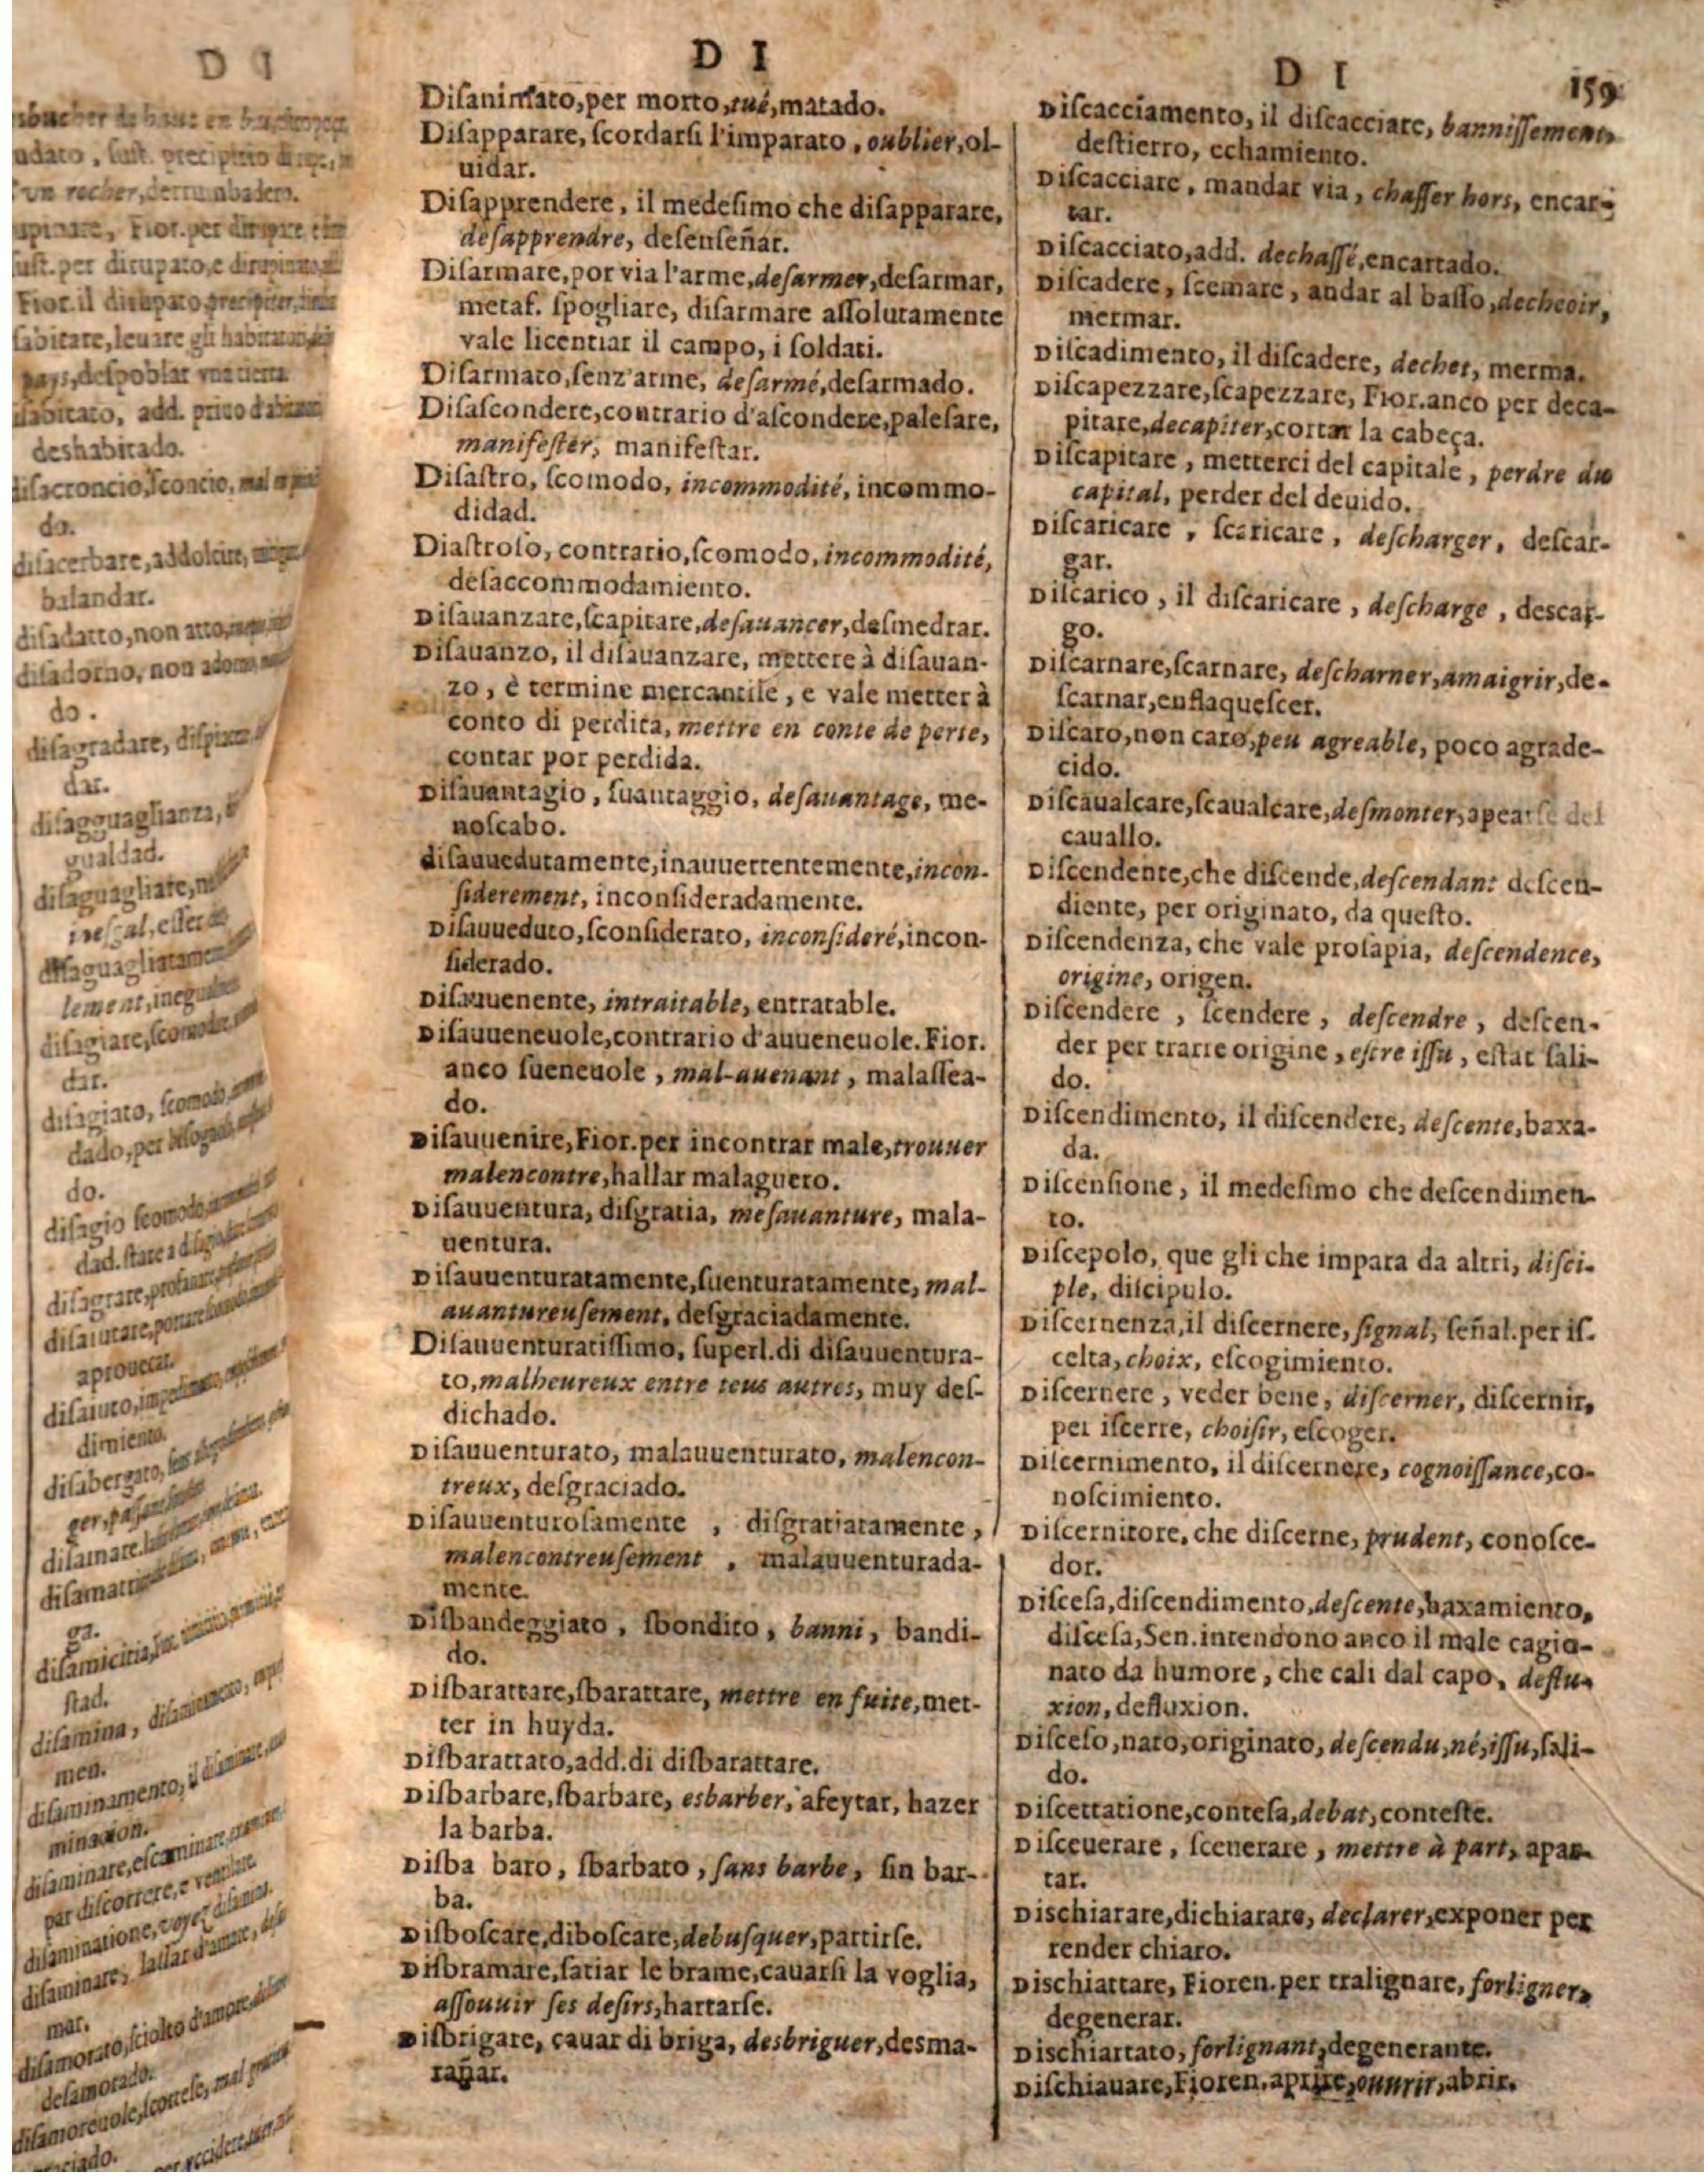 D I
deshabitado.
do.
disacerbare, addolcire,
balandar.
disadatto, non atto,
disadorno, non adorno,
do.
disagradare,
dar.
disagguaglianza,
gualdad.
disaguagliare,
disagiare,
dar.
disagiato, scomodo,
do.
disagio scomodo,
aprouecar.
dimiento.
ga.
stad.
disamina,
men.
disaminamento, il
minacion.
mar.
desamorado.
D I
Disanimato, per morto, tué, matado.
Disapparare, ſcordarſi l'imparato, oublier, ol-
uidar.
Diſapprendere, il medeſimo che diſapparare,
deſapprendre, deſenſeñar.
Diſarmare, por via l'arme, deſarmer, deſarmar,
metaf. ſpogliare, diſarmare aſſolutamente
vale licentiar il campo, i ſoldati.
Diſarmato, ſenz'arme, deſarmé, deſarmado.
Diſaſcondere, contrario d'aſcondere, paleſare,
manifeſter, manifeſtar.
Diſaſtro, ſcomodo, incommodité, incommo-
didad.
Diaſtroſo, contrario, ſcomodo, incommodité,
deſaccommodamiento.
Diſauanzare, ſcapitare, deſauancer, deſmedrar.
Diſauanzo, il diſauanzare, mettere à diſauan-
zo, è termine mercantile, e vale metter à
conto di perdita, mettre en conte de perte,
contar por perdida.
Diſauantagio, ſuantaggio, deſauantage, me-
noſcabo.
diſauuedutamente, inauuertentemente, incon-
ſiderement, inconſideradamente.
Diſauueduto, ſconſiderato, inconſideré, incon-
ſiderado.
Diſauuenente, intraitable, entratable.
Diſauueneuole, contrario d'auueneuole. Fior.
anco ſueneuole, mal-auenant, malaſſea-
do.
Diſauuenire, Fior. per incontrar male, trouuer
malencontre, hallar malaguero.
Diſauuentura, diſgratia, meſauanture, mala-
uentura.
Diſauuenturatamente, ſuenturatamente, mal-
auantureuſement, deſgraciadamente.
Diſauuenturatiſſimo, ſuperl. di diſauuentura-
to, malheureux entre tous autres, muy deſ-
dichado.
Diſauuenturato, malauuenturato, malencon-
treux, deſgraciado.
Diſauuenturoſamente, diſgratiatamente,
malencontreuſement, malauuenturada-
mente.
Diſbandeggiato, ſbondito, banni, bandi-
do.
Diſbarattare, ſbarattare, mettre en fuite, met-
ter in huyda.
Diſbarattato, add. di diſbarattare.
Diſbarbare, ſbarbare, esbarber, afeytar, hazer
la barba.
Diſba baro, ſbarbato, ſans barbe, ſin bar-
ba.
Diſboſcare, diboſcare, debuſquer, partirſe.
Diſbramare, ſatiar le brame, cauarſi la voglia,
aſſouuir ſes deſirs, hartarſe.
Diſbrigare, cauar di briga, desbriguer, desma-
rañar.
D I 159
Diſcacciamento, il diſcacciare, banniſſement,
deſtierro, echamiento.
Diſcacciare, mandar via, chaſſer hors, encar-
tar.
Diſcacciato, add. dechaſſé, encartado.
Diſcadere, ſcemare, andar al baſſo, decheoir,
mermar.
Diſcadimento, il diſcadere, dechet, merma.
Diſcapezzare, ſcapezzare, Fior. anco per deca-
pitare, decapiter, cortar la cabeça.
Diſcapitare, metterci del capitale, perdre du
capital, perder del deuido.
Diſcaricare, ſcaricare, deſcharger, deſcar-
gar.
Diſcarico, il diſcaricare, deſcharge, descar-
go.
Diſcarnare, ſcarnare, deſcharner, amaigrir, de-
ſcarnar, enflaqueſcer.
Diſcaro, non caro, peu agreable, poco agrade-
cido.
Diſcaualcare, ſcaualcare, deſmonter, apearſe del
cauallo.
Diſcendente, che diſcende, deſcendant deſcen-
diente, per originato, da queſto.
Diſcendenza, che vale proſapia, deſcendence,
origine, origen.
Diſcendere, ſcendere, deſcendre, deſcen-
der per trarre origine, eſtre iſſu, eſtar ſali-
do.
Diſcendimento, il diſcendere, deſcente, baxa-
da.
Diſcenſione, il medeſimo che deſcendimen-
to.
Diſcepolo, que gli che impara da altri, diſci-
ple, diſcipulo.
Diſcernenza, il diſcernere, ſignal, ſeñal. per iſ-
celta, choix, eſcogimiento.
Diſcernere, veder bene, diſcerner, diſcernir,
per iſcerre, choiſir, eſcoger.
Diſcernimento, il diſcernere, cognoiſſance, co-
noſcimiento.
Diſcernitore, che diſcerne, prudent, conoſce-
dor.
Diſceſa, diſcendimento, deſcente, baxamiento,
diſceſa, Sen. intendono anco il male cagio-
nato da humore, che cali dal capo, deflu-
xion, defluxion.
Diſceſo, nato, originato, deſcendu, né, iſſu, ſali-
do.
Diſcettatione, conteſa, debat, conteſte.
Diſceuerare, ſceuerare, mettre à part, apar-
tar.
Dischiarare, dichiarare, declarer, exponer per
render chiaro.
Dischiattare, Fioren. per tralignare, forligner,
degenerar.
Dischiattato, forlignant, degenerante.
Diſchiauare, Fioren. aprire, ouurir, abrir.